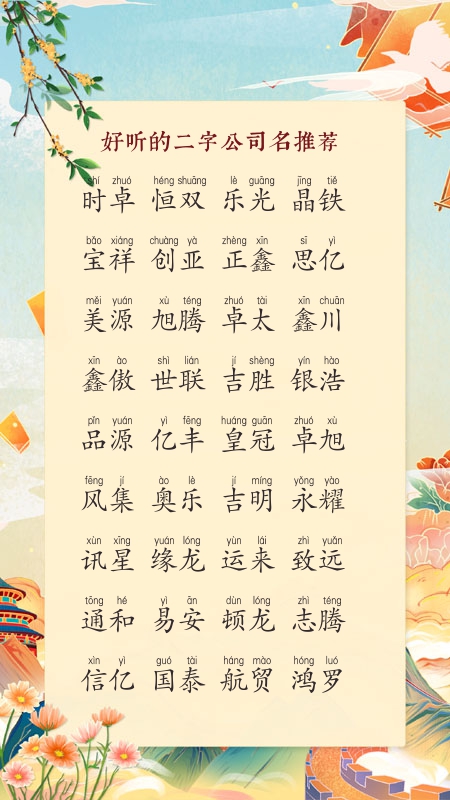 好听的二字公司名推荐
shí zhuó héng shuāng lè guāng jīng tiě
时卓 恒双 乐光 晶铁
bǎo xiáng chuàng yà zhèng xīn sī yì
宝祥 创亚 正鑫 思亿
měi yuán xù téng zhuó tài xīn chuān
美源 旭腾 卓太 鑫川
xīn ào shì lián jí shèng yín hào
鑫傲 世联 吉胜 银浩
pǐn yuán yì fēng huáng guān zhuó xù
品源 亿丰 皇冠 卓旭
fēng jí ào lè jí míng yǒng yào
风集 奥乐 吉明 永耀
xùn xīng yuán lóng yùn lái zhì yuǎn
讯星 缘龙 运来 致远
tōng hé yì ān dùn lóng zhì téng
通和 易安 顿龙 志腾
xìn yì guó tài háng mào hóng luó
信亿 国泰 航贸 鸿罗